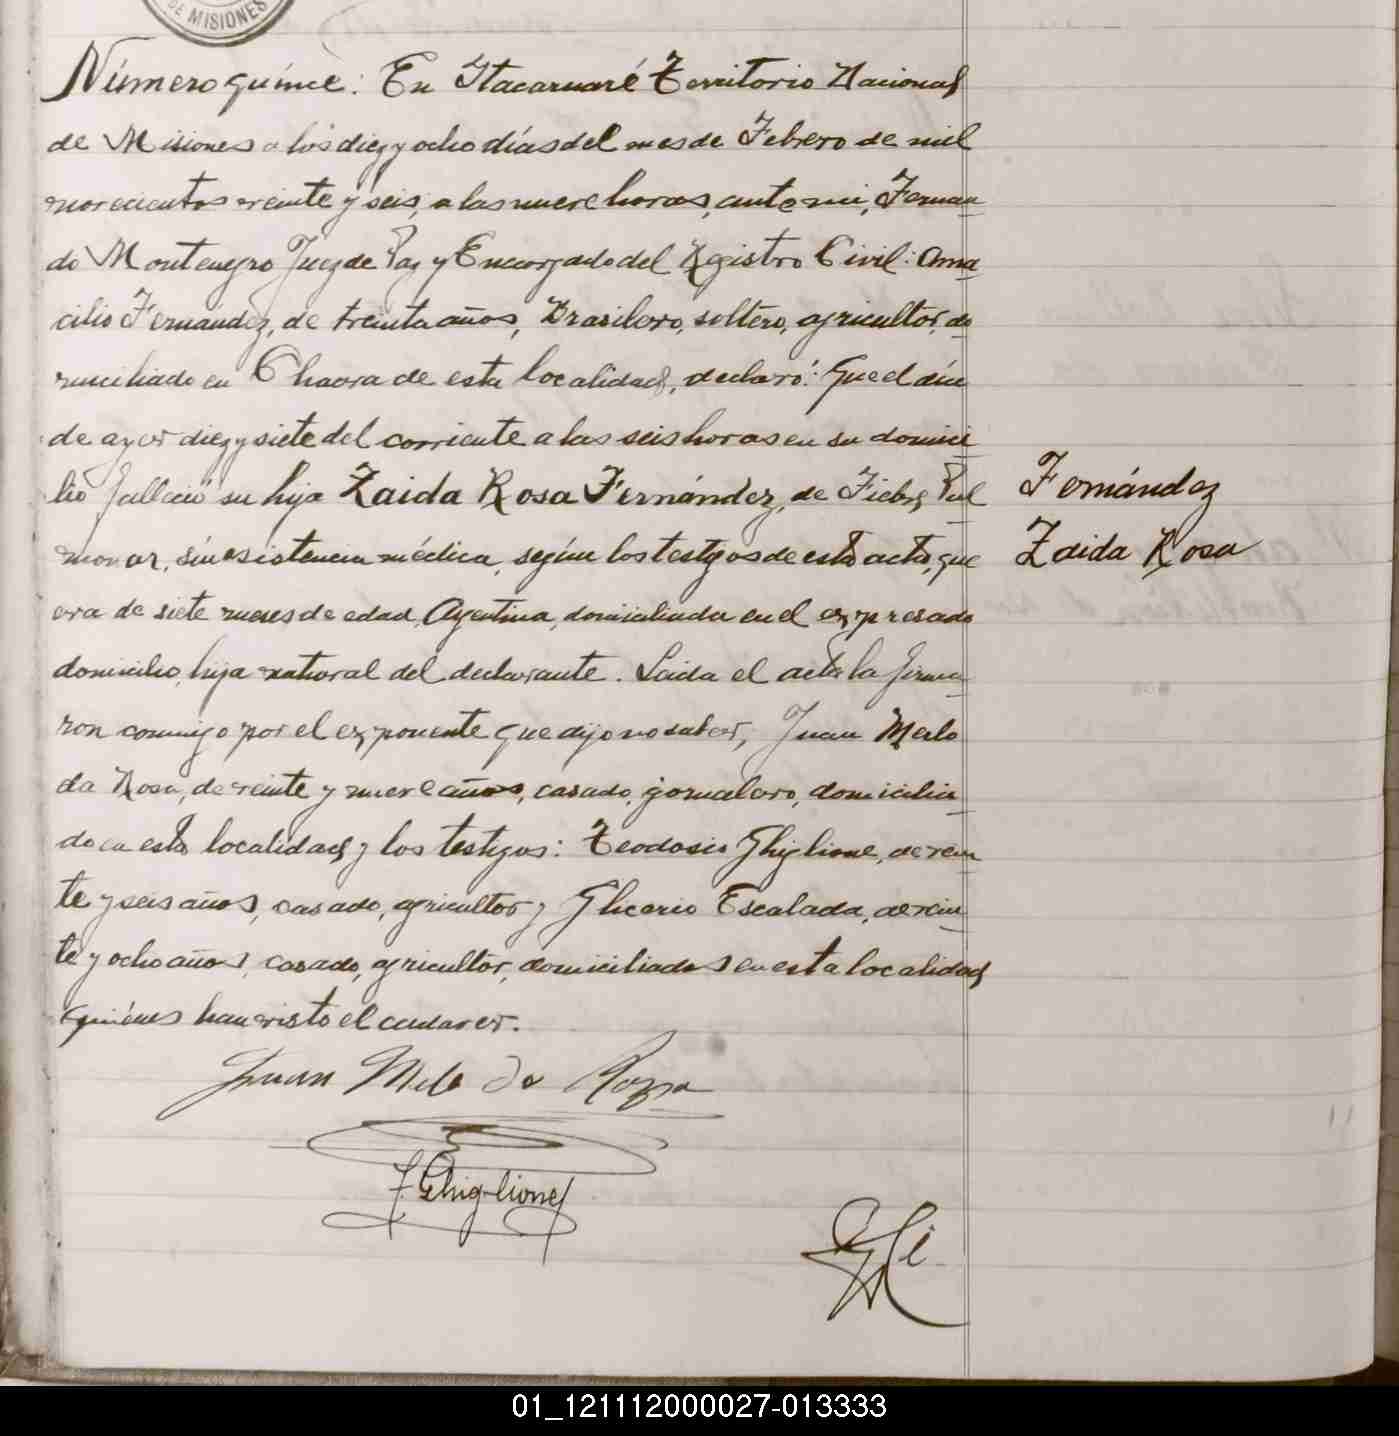 DE MISIONES
Número quince: En Itacaruaré Territorio Nacional
de Misiones a los diez y ocho días del mes de Febrero de mil
novecientos veinte y seis, a las nueve horas, ante mi, Fernan
do Montenegro Juez de Paz y Encargado del Registro Civil: Ama
cilio Fernandez, de treinta años, Brasilero, soltero, agricultor, do
miciliado en Chacra de esta localidad, declaró: Que el día
de ayer diez y siete del corriente a las seis horas en su domici
lio falleció su hija Zaida Rosa Fernández, de Fiebre Pul
Fernández
monar, sin asistencia médica, según los testigos de este acto, que
Zaida Rosa
era de siete meses de edad, Argentina, domiciliada en el expresado
domicilio, hija natural del declarante. Leida el acta la firma
ron conmigo por el exponente que dijo no saber, Juan Melo
da Rosa, de veinte y nueve años, casado, jornalero, domicilia
do en esta localidad y los testigos: Teodosio Ghiglione, de vein
te y seis años, casado, agricultor y Glicerio Escalada, de vein
te y ocho años, casado, agricultor, domiciliados en esta localidad
quiénes han visto el cadaver.
Juan Melo da Rozza
T Ghiglione
01_121112000027-013333